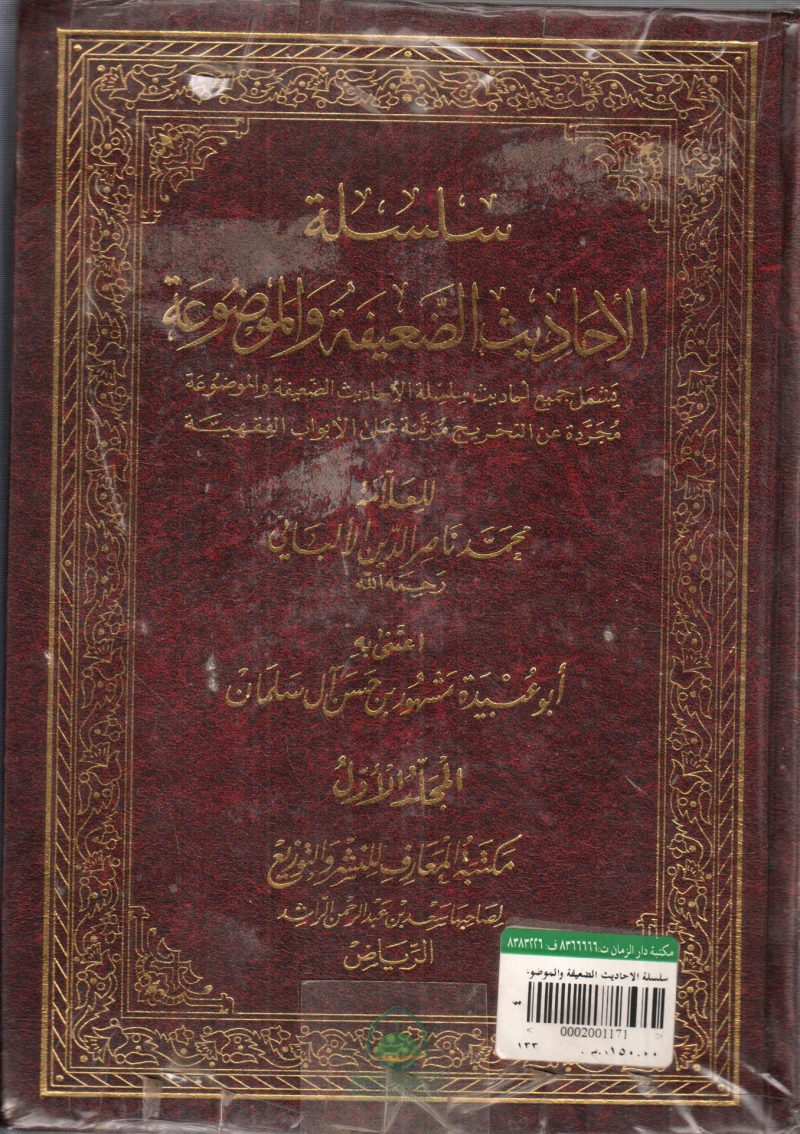 سلسلة
الأحاديث الضَّعيفة والموضوعَة
يَشمل جميع أحاديث سلسلة الأحاديث الضعيفة والموضوعَة
مُجرَّدة عن التخريج مُرتَّبة على الأبواب الفِقهيَّة
للعلّامة
محمّد ناصر الدّين الألباني
رَحِمَه الله
اعتَنى به
أبو عُبيدة مَشهُور بن حَسَن آل سَلمان
المجلّد الأوّلُ
مكتَبة المعَارف للنّشر والتوزيع
لصَاحبها سَعد بن عَبد الرحمن الراشد
الريَاض
مكتبة دار الزمان ت: ٨٣٦٦٦٦٦ ف: ٨٣٨٣٢٢٦
سلسلة الاحاديث الضعيفة والموضو
0002001171
١٣٣
١٥٠.٠٠